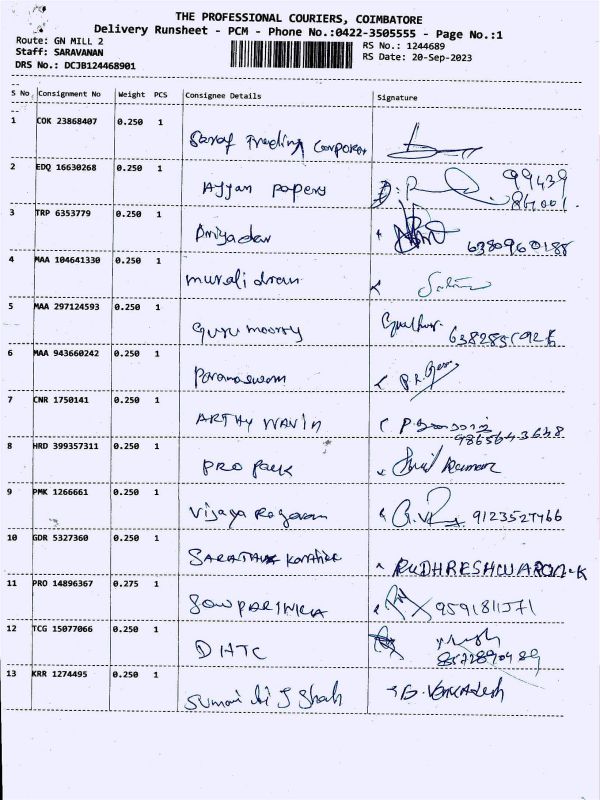 THE PROFESSIONAL COURIERS, COIMBATORE
Delivery Runsheet - PCM - Phone No.:0422-3505555 - Page No.:1
Route: GN MILL 2
RS No.: 1244689
Staff: SARAVANAN
RS Date: 20-Sep-2023
DRS No.: DCJB124468901
S No Consignment No Weight PCS Consignee Details Signature
1 COK 23868407 0.250 1
Saraf Trading Corporat
2 EDQ 16630268 0.250 1
Ayyan papers 99439
3 TRP 6353779 0.250 1
Priyadar 6380960188
4 MAA 104641330 0.250 1
murali dran
5 MAA 297124593 0.250 1
Guru moorty
6 MAA 943660242 0.250 1
Paramaswam P.R.
7 CNR 1750141 0.250 1
ARTHY NAVIN
9865643638
8 HRD 399357311 0.250 1
PRO Pack Kumar
9 PMK 1266661 0.250 1
Vijaya Ragavan 9123527466
10 GDR 5327360 0.250 1
RUDHRESHWARAN.K
11 PRO 14896367 0.275 1
SOWPARNIKA 9591811571
12 TCG 15077066 0.250 1
DHTC
8572890489
13 KRR 1274495 0.250 1
J Shah B. Venkadesh